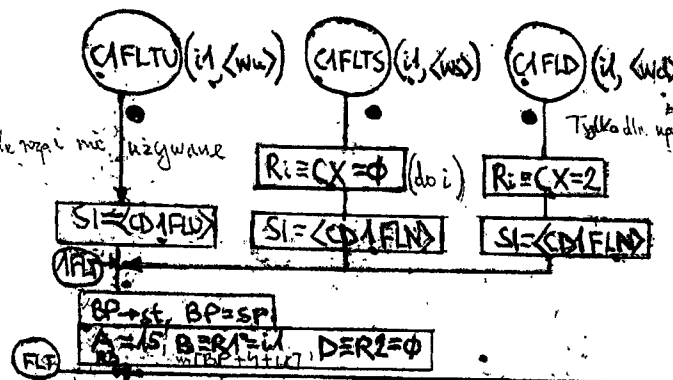 C1FLTU (i1, <wu>) C1FLTS (i1, <ws>) C1FLD (i1, <wd>
i nie używane
Tylko dla
Ri≡CX=ϕ (do i)
Ri≡CX=2
SI=<CD1FLU>
SI=<CD1FLN>
SI=<CD1FLN>
1FLT
BP→st, BP=sp
A=15, B≡R1=i1 D≡R2=ϕ
FLT